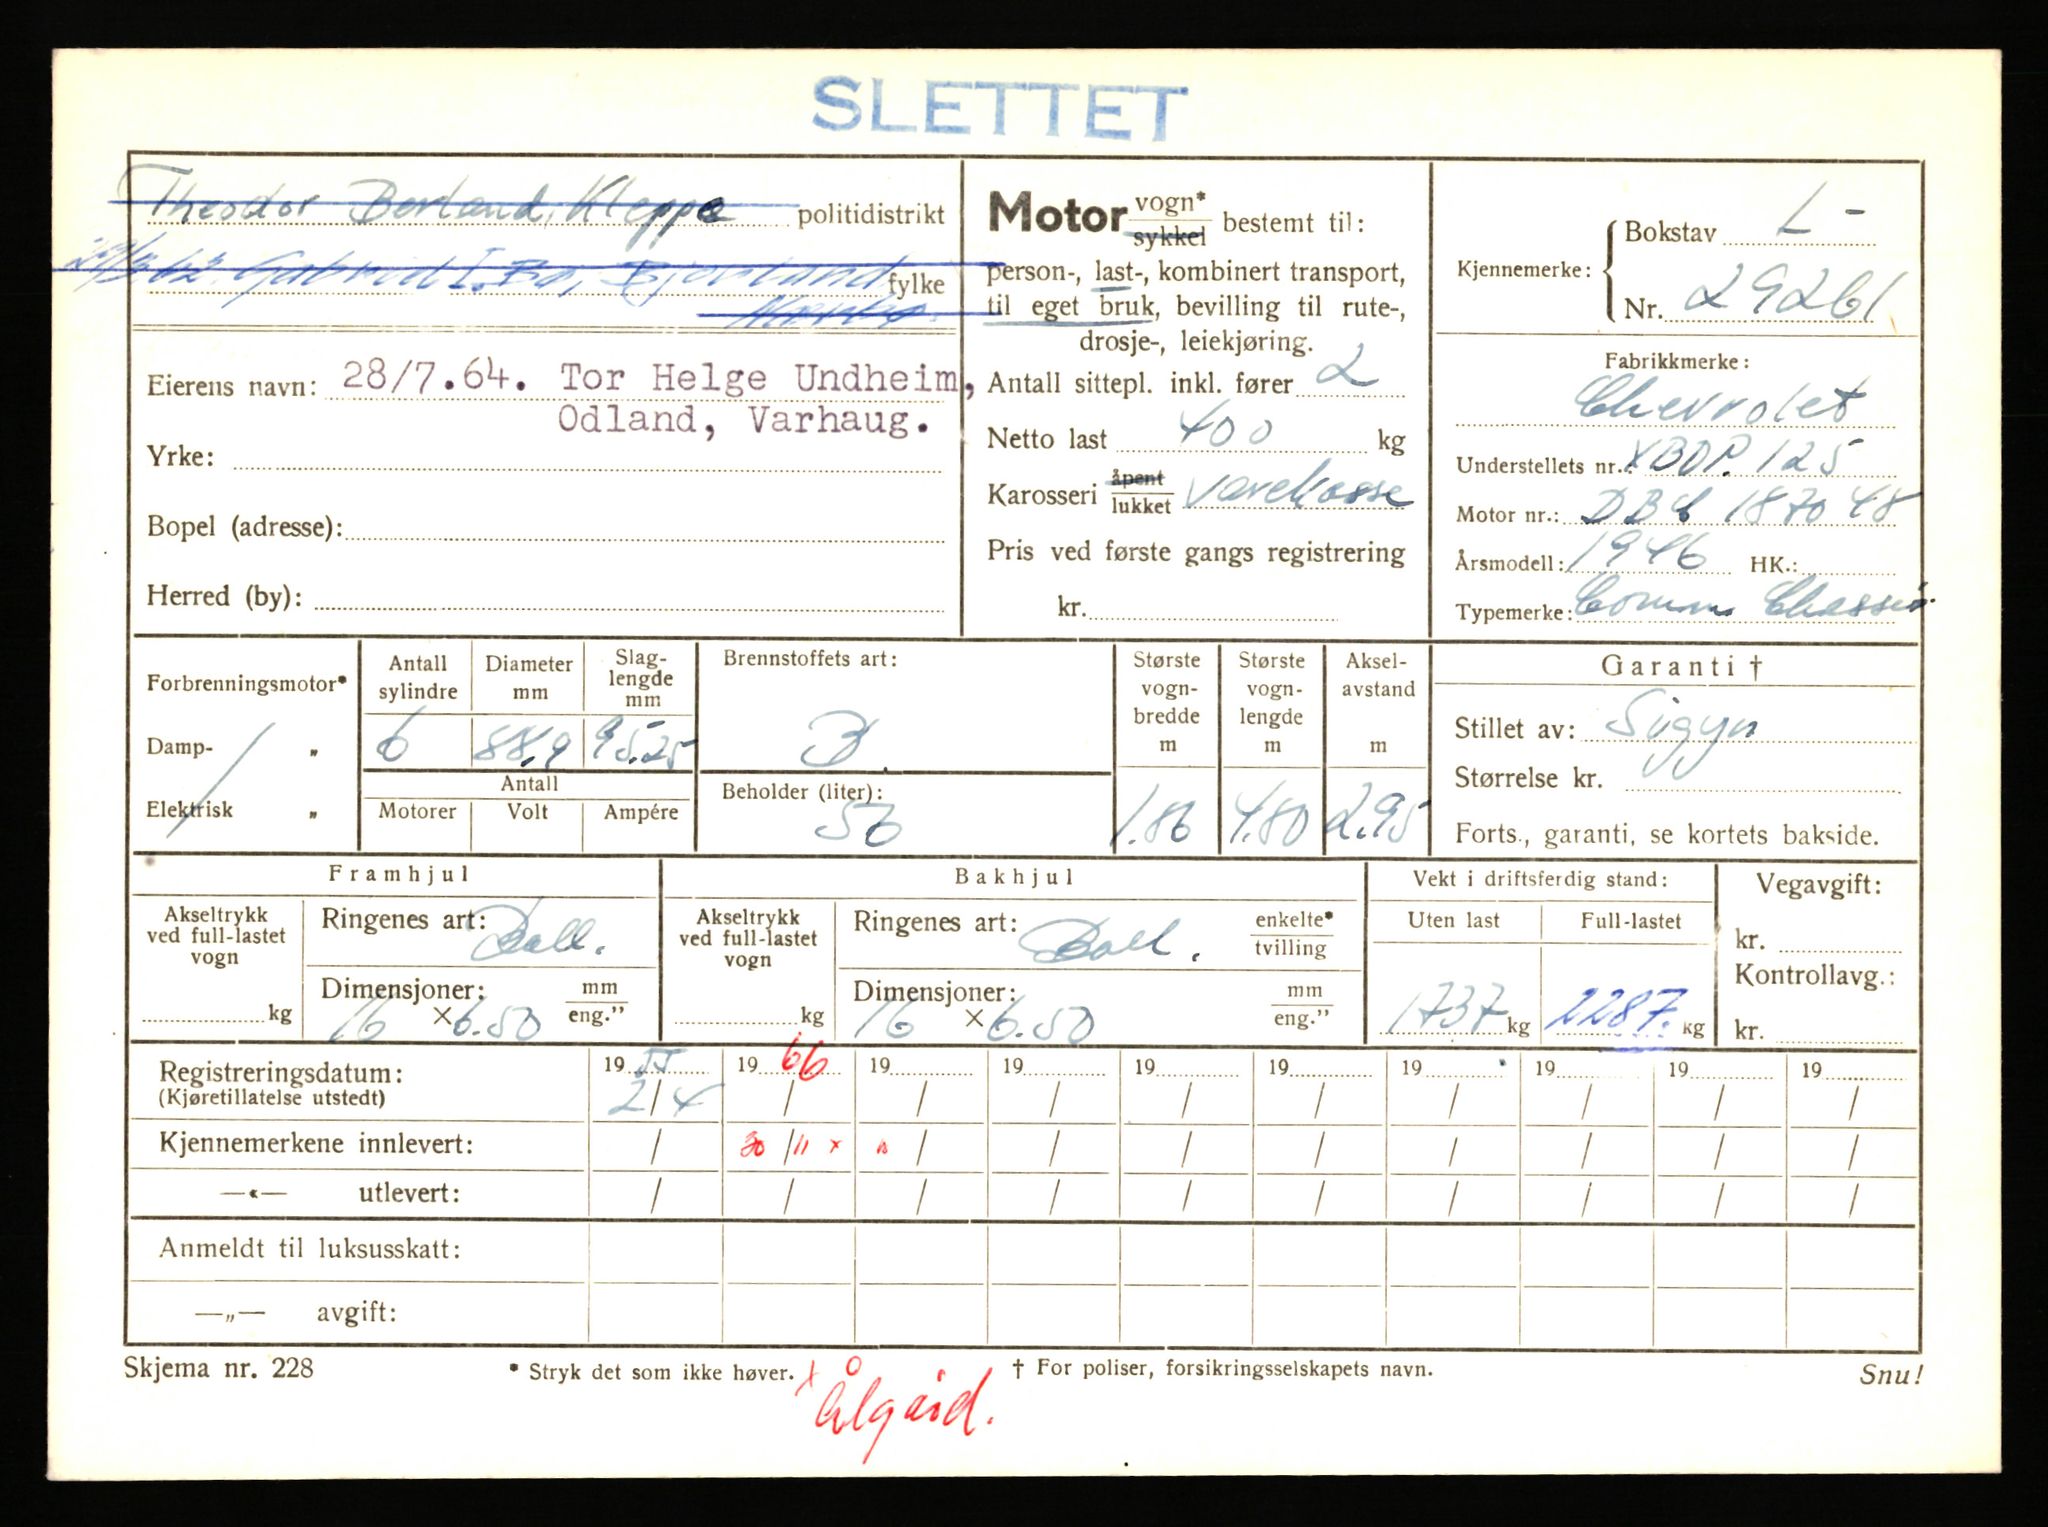 SLETTET
Theodor Borland, Kleppe politidistrikt
Gabriel I. Bø, fylke
Eierens navn: 28/7.64. Tor Helge Undheim,
Odland, Varhaug.
Yrke:
Bopel (adresse):
Herred (by):
Motor vogn* / sykkel bestemt til:
person-, last-, kombinert transport,
til eget bruk, bevilling til rute-,
drosje-, leiekjøring.
Antall sittepl. inkl. fører 2
Netto last 400 kg
Karosseri åpent / lukket varekasse
Pris ved første gangs registrering
kr.
Kjennemerke: Bokstav L-
Nr. 29261
Fabrikkmerke:
Chevrolet
Understellets nr.: XBDP. 125
Motor nr.: DBC 187048
Årsmodell: 1946 HK.:
Typemerke: Comm. Chassis
Forbrenningsmotor*
Damp- „
Elektrisk „
Antall sylindre Diameter mm Slag-lengde mm
6 88,9 95.25
Antall
Motorer Volt Ampére
Brennstoffets art:
B.
Beholder (liter):
56
Største vogn-bredde m 1.86
Største vogn-lengde m 4.80
Aksel-avstand m 2.95
Garanti †
Stillet av: Sigyn
Størrelse kr.
Forts., garanti, se kortets bakside.
Framhjul
Akseltrykk ved full-lastet vogn
kg
Ringenes art: Ball.
Dimensjoner: mm / eng.”
16 × 6.50
Bakhjul
Akseltrykk ved full-lastet vogn
kg
Ringenes art: Ball. enkelte* / tvilling
Dimensjoner: mm / eng.”
16 × 6.50
Vekt i driftsferdig stand:
Uten last Full-lastet
1737 kg 2287. kg
Vegavgift:
kr.
Kontrollavg.:
kr.
Registreringsdatum: 19 55 19 66 19 19 19 19 19 19 19 19
(Kjøretillatelse utstedt) 2/4 / / / / / / / / /
Kjennemerkene innlevert: / 30/11 x / / / / / / / /
—«— utlevert: / / / / / / / / / /
Anmeldt til luksusskatt:
—„— avgift:
Skjema nr. 228 * Stryk det som ikke høver. † For poliser, forsikringsselskapets navn. Snu!
x Ålgård.